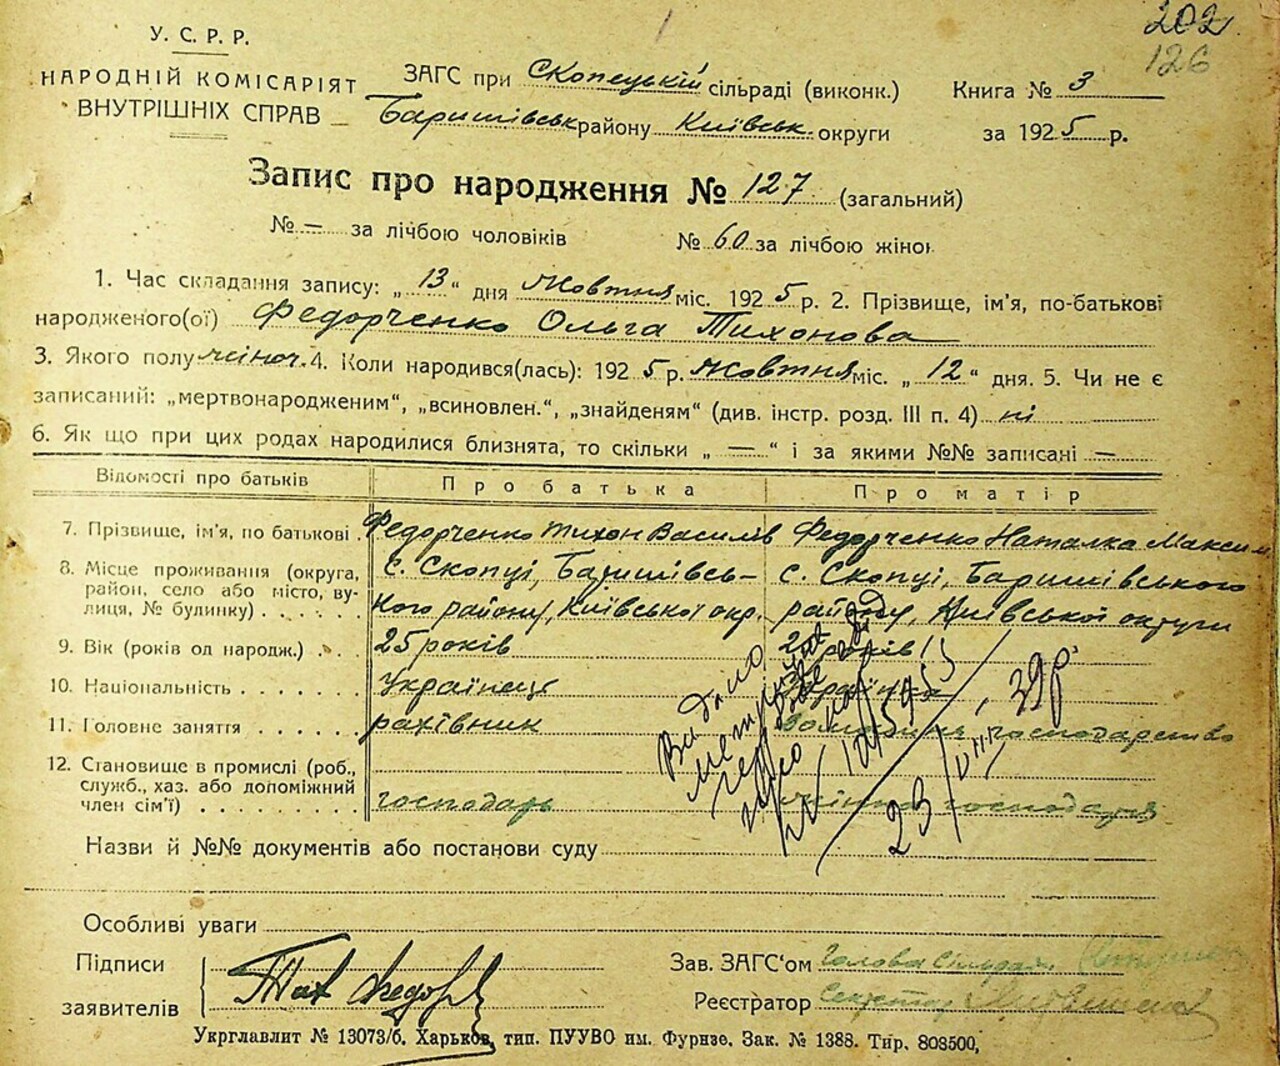 202.
126
У. С. Р. Р.
НАРОДНІЙ КОМІСАРІЯТ
ВНУТРІШНІХ СПРАВ
ЗАГС при Скопецькій сільраді (виконк.) Книга № 3
Баришівськ району Київськ. округи за 1925 р.
Запис про народження № 127 (загальний)
№ — за лічбою чоловіків № 60 за лічбою жінок
1. Час складання запису: „13“ дня Жовтня міс. 1925 р. 2. Прізвище, ім'я, по-батькові
народженого(ої) Федорченко Ольга Тихонова
3. Якого полу жіноч. 4. Коли народився(лась): 1925 р. Жовтня міс. „12“ дня. 5. Чи не є
записаний: „мертвонародженим“, „всиновлен.“, „знайденям“ (див. інстр. розд. III п. 4) ні
6. Як що при цих родах народилися близнята, то скільки „—“ і за якими №№ записані —
Відомості про батьків Про батька Про матір
7. Прізвище, ім'я, по батькові Федорченко Тихон Василів Федорченко Наталка Максим
8. Місце проживання (округа, с. Скопці, Баришівсь- с. Скопці, Баришівського
район, село або місто, ву-
лиця, № будинку) кого району, Київської окр. району, Київської округи
9. Вік (років од народж.) 25 років 25 років
10. Національність Українець Українка
11. Головне заняття рахівник господарство
12. Становище в промислі (роб.,
служб., хаз. або допоміжний
член сім'ї) господарь жінка господаря
Видано
23/VIII, 39р.
Назви й №№ документів або постанови суду
Особливі уваги
Підписи
заявителів Тих Федор
Зав. ЗАГС'ом Голова сільради
Реєстратор Секретар
Укрглавлит № 13073/б. Харьков, тип. ПУУВО им. Фурнзе. Зак. № 1388. Тир. 808500,